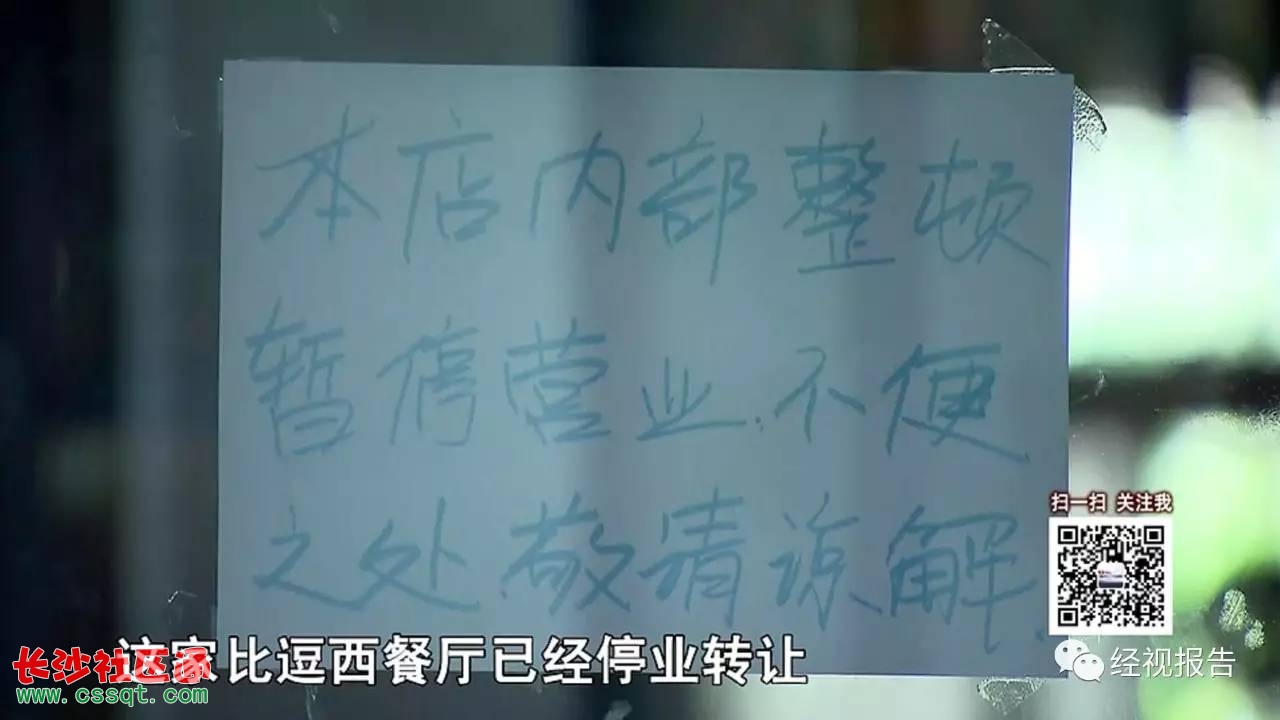 本店内部整顿
暂停营业.不便
之处敬请谅解.
扫一扫 关注我
这家比逗西餐厅已经停业转让
长沙社区通
www.cssqt.com
经视报告